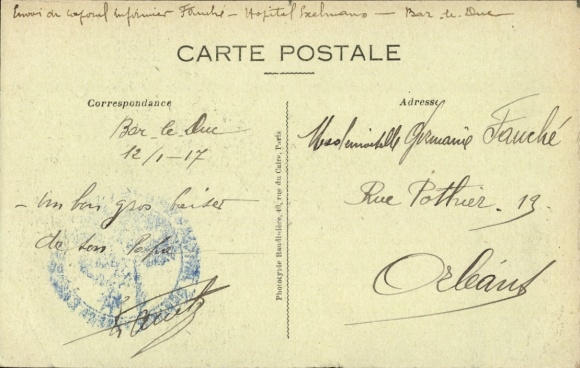 Envoi du caporal infirmier Fauché - Hôpital Exelmans - Bar-le-Duc
CARTE POSTALE
Correspondance
Adresse
Bar-le-Duc
12/1-17
- Un bon gros baiser
de ton Papa
Fauché
Phototypie Baudinière, rue du Caire, Paris
Mademoiselle Germaine Fauché
Rue Pothier. 13
Orléans